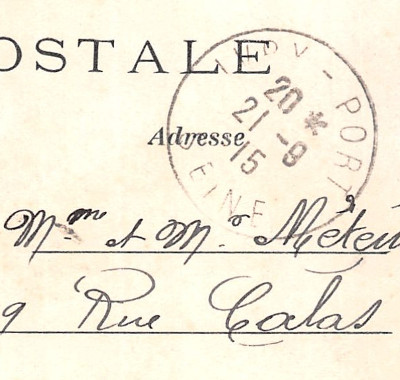 OSTALE
PORT
20 *
21 - 9
15
EINE
Adresse
Mme et Mr
9 Rue Calas